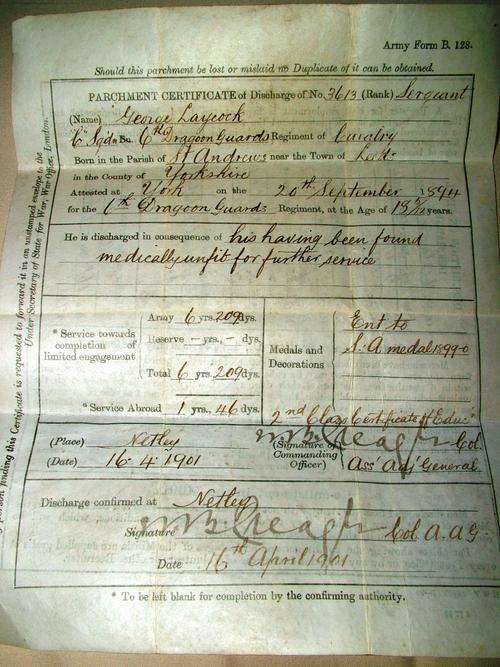 Army Form B. 128.
Should this parchment be lost or mislaid no Duplicate of it can be obtained.
PARCHMENT CERTIFICATE of Discharge of No. 3613 (Rank) Sergeant
(Name) George Laycock
6th Dragoon Guards Regiment of Cavalry
Born in the Parish of St Andrews near the Town of Leeds
in the County of Yorkshire
Attested at York on the 20th September 1894
for the 6th Dragoon Guards Regiment, at the Age of 18 years.
He is discharged in consequence of his having been found
medically unfit for further service
* Service towards completion of limited engagement
Army 6 yrs. 209 dys.
Reserve – yrs. – dys.
Total 6 yrs. 209 dys.
* Service Abroad 1 yrs. 46 dys.
Medals and Decorations
Ent to
S. A medal 1899-0
2nd Class Certificate of Educn
(Place) Netley
(Date) 16-4-1901
(Signature of Commanding Officer)
Col.
Ass Adj General
Discharge confirmed at Netley
Signature Col. A. A G
Date 16th April 1901
* To be left blank for completion by the confirming authority.
person finding this Certificate is requested to forward it in an unstamped envelope to the
Under Secretary of State for War, War Office, London.